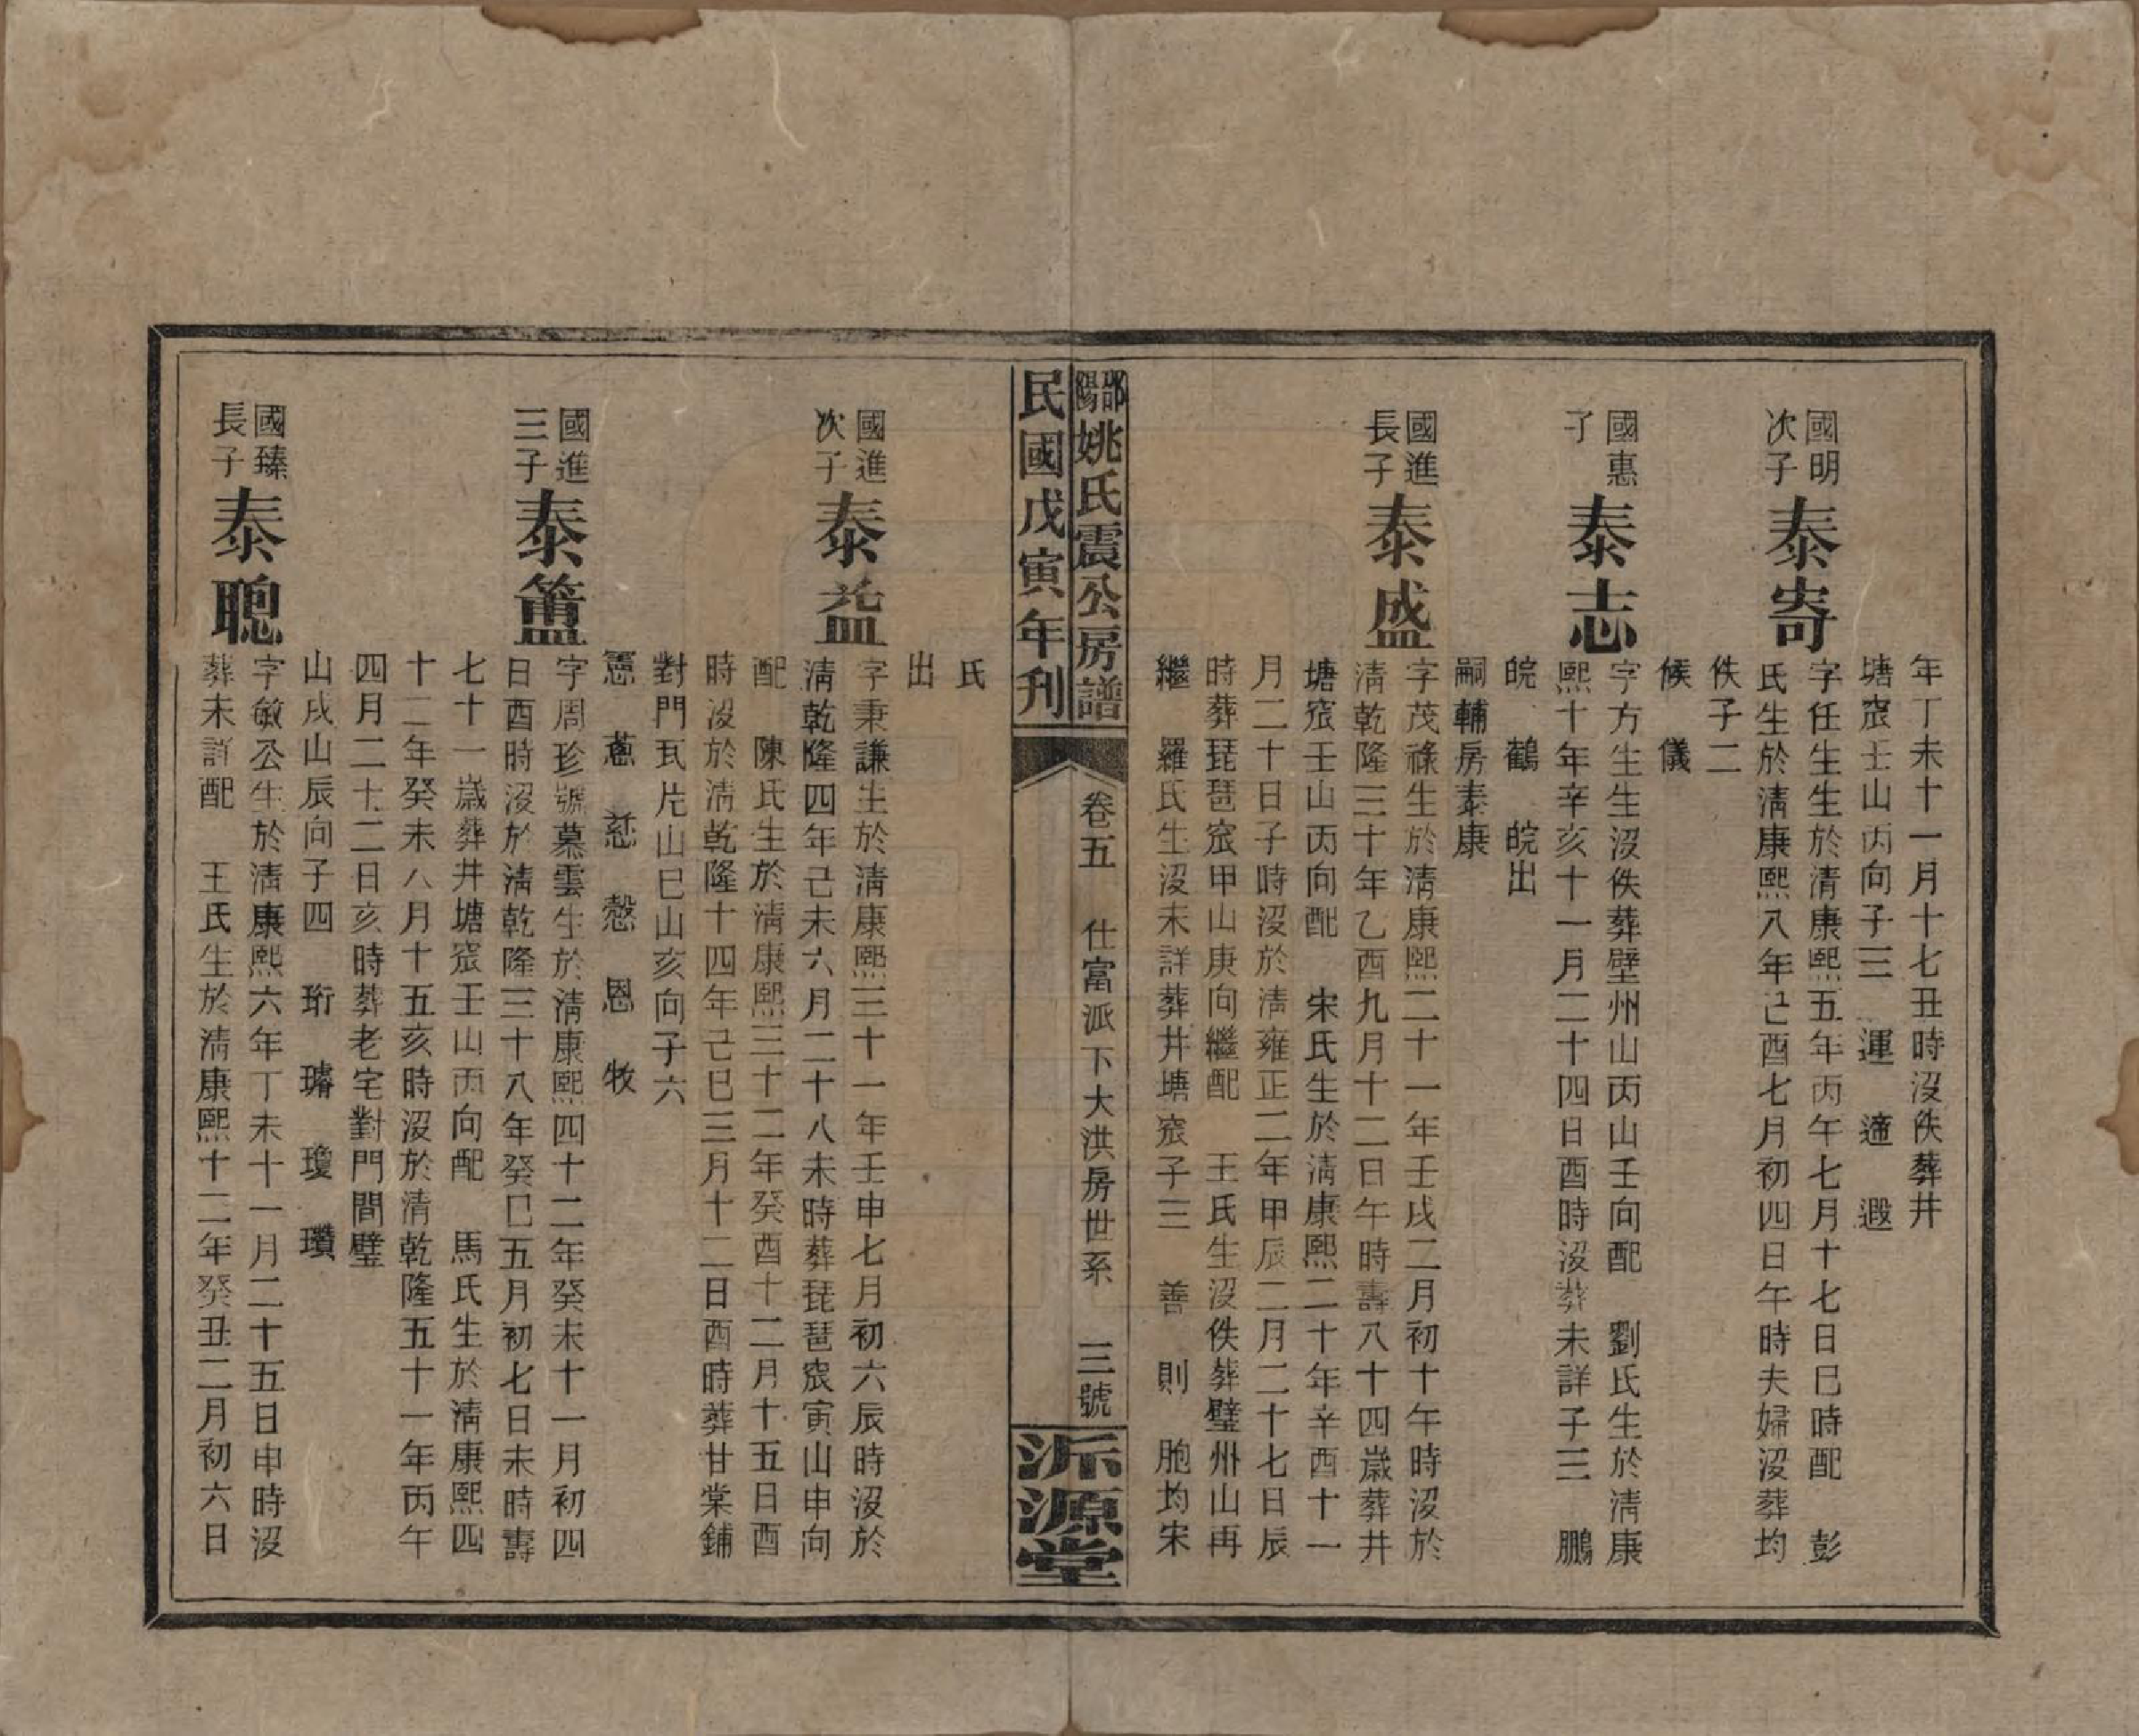 年丁未十一月十七丑時沒佚葬井
塘窊壬山丙向子三　運　適　遐
國明
次子
泰寄
字任生生於清康熙五年丙午七月十七日巳時配　彭
氏生於清康熙八年己酉七月初四日午時夫婦沒葬均
佚子二
候　儀
國惠
子
泰志
字方生生沒佚葬壁州山丙山壬向配　劉氏生於清康
熙十年辛亥十一月二十四日酉時沒葬未詳子三　鵬
皖　鶴　皖出
嗣輔房泰康
國進
長子
泰盛
字茂祿生於清康熙二十一年壬戌二月初十午時沒於
清乾隆三十年乙酉九月十二日午時壽八十四歲葬井
塘窊壬山丙向配　宋氏生於清康熙二十年辛酉十一
月二十日子時沒於清雍正二年甲辰二月二十七日辰
時葬琵琶窊甲山庚向繼配　王氏生沒佚葬壁州山再
繼　羅氏生沒未詳葬井塘窊子三　善　則　胞均宋
邵陽姚氏震公房譜
卷五　仕富派下大洪房世系　三號
民國戊寅年刊
派源堂
氏
出
國進
次子
泰益
字秉謙生於清康熙三十一年壬申七月初六辰時沒於
清乾隆四年己未六月二十八未時葬琵琶窊寅山申向
配　陳氏生於清康熙三十二年癸酉十二月十五日酉
時沒於清乾隆十四年己巳三月十二日酉時葬甘棠鋪
對門瓦片山巳山亥向子六
憲　蒽　䒷　慤　恩　牧
國進
三子
泰簠
字周珍號慕雲生於清康熙四十二年癸未十一月初四
日酉時沒於清乾隆三十八年癸巳五月初七日未時壽
七十一歲葬井塘窊壬山丙向配　馬氏生於清康熙四
十二年癸未八月十五亥時沒於清乾隆五十一年丙午
四月二十二日亥時葬老宅對門間壁
山戌山辰向子四　珩　璿　瓊　瓚
國臻
長子
泰聰
字敏公生於清康熙六年丁未十一月二十五日申時沒
葬未詳配　王氏生於清康熙十二年癸丑二月初六日